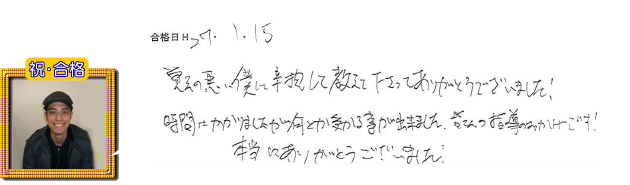 合格日H27.1.15
祝・合格
覚えの悪い僕に辛抱して教えて下さってありがとうございました!
時間はかかりましたが何とか受かる事が出来ました。皆さんの指導のおかげです!
本当にありがとうございました!